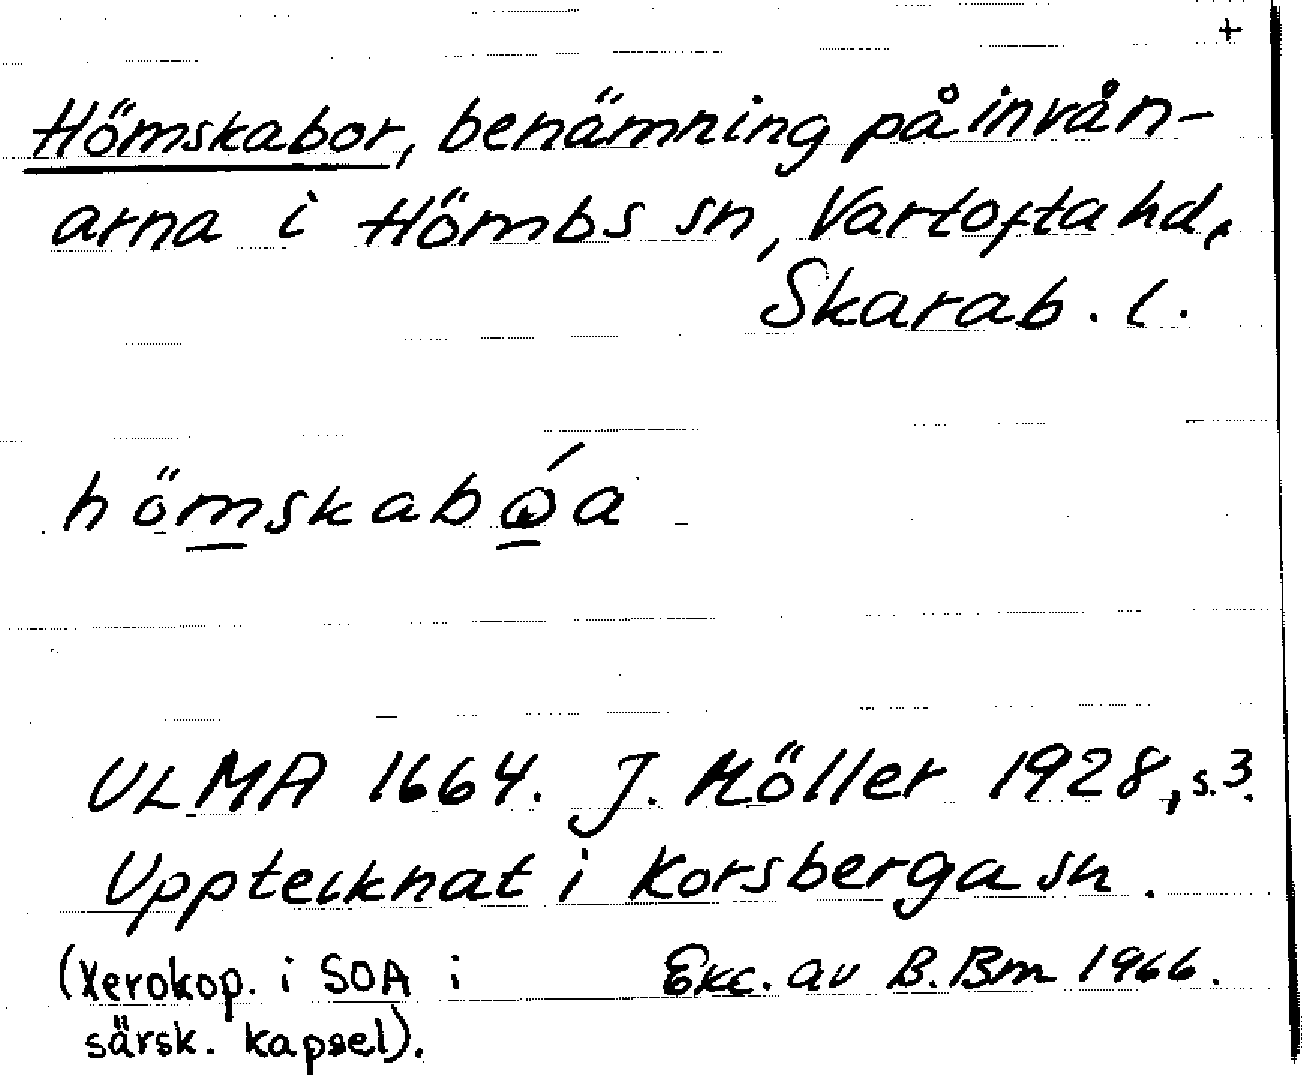 +
Hömskabor, benämning på invån-
arna i Hömbs sn, Vartofta hd,
Skarab. l.
hömskabǫ́a
ULMA 1664. J. Möller 1928, s. 3.
Upptecknat i Korsberga sn.
(Xerokop. i SOA i särsk. kapsel).
Exc. av B. Bm 1966.